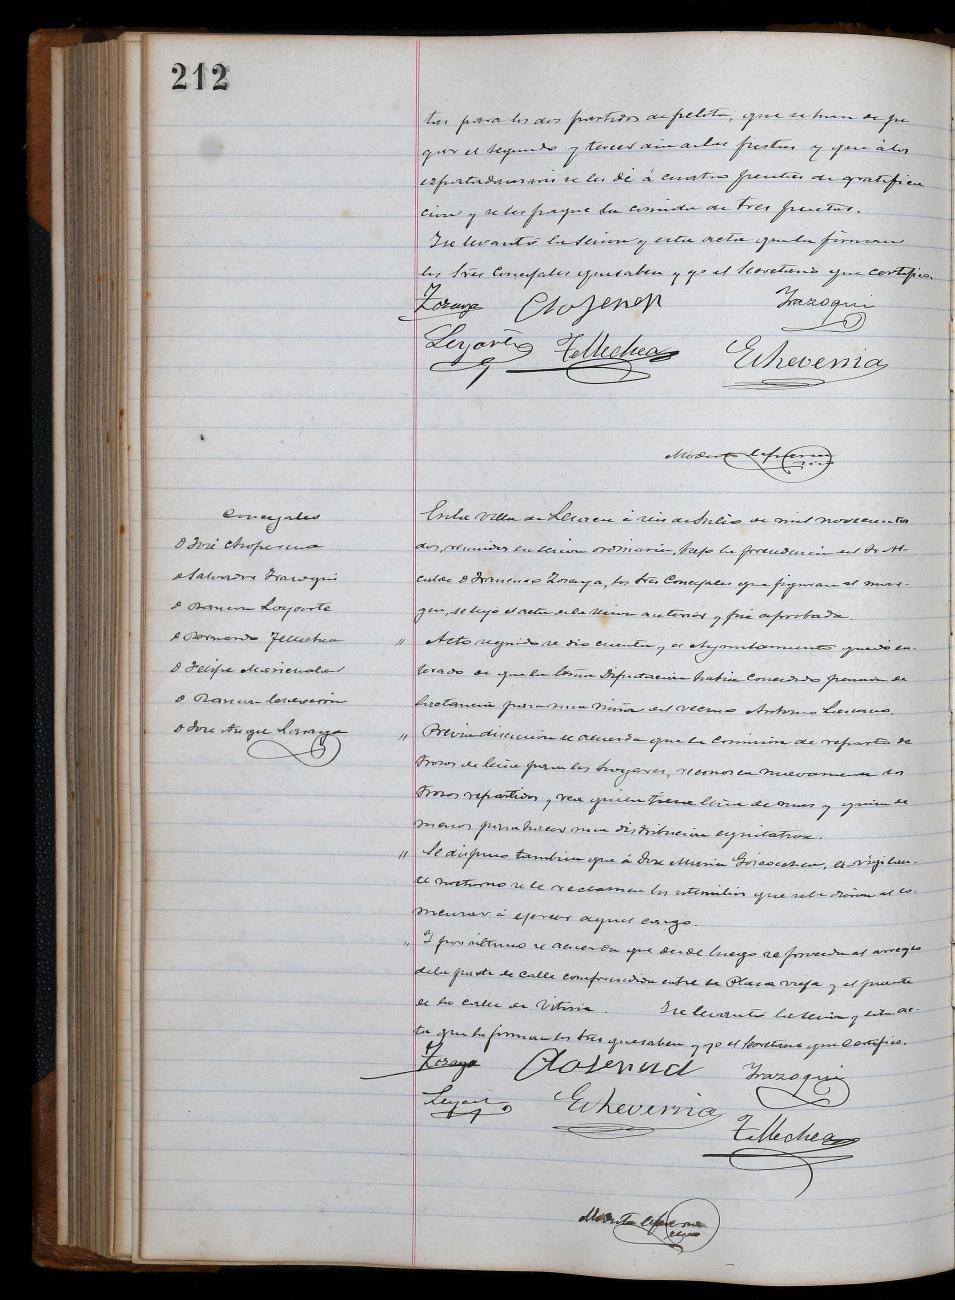 212
tas para los dos partidos de pelota, que se han de ju
gar el segundo y tercer dia de las fiestas y que á los
se les dé á cuatro pesetas de gratifica
cion y se les pague la comida de tres pesetas.
Se levantó la sesion y esta acta que la firman
los Sres Concejales que saben y yo el Secretario que certifico.
Zozaya
Irazoqui
Loyarte Tellechea Echeverria
Concejales
D José
D Salvador Irazoqui
D Ramon Loyarte
D Bernardo Tellechea
D Felipe
D Ramon
D José Angel
En la villa de á seis de Julio de mil novecientos
dos, reunidos en sesion ordinaria, bajo la presidencia del Sr Al-
calde D Francisco Zozaya, los Sres Concejales que figuran al mar-
gen, se leyó el acta de la sesion anterior y fué aprobada.
" Acto seguido se dio cuenta y el Ayuntamiento quedó en-
terado de que la Diputacion habia concedido pension de
lactancia para una niña del vecino Antonio
" Previa discusion se acuerda que la Comision de reparto de
trozos de leña para los hogares, reconozca nuevamente los
trozos repartidos y vea quien tiene leña de mas y quien de
menos para hacer una distribucion equitativa.
" Se dispuso tambien que á José Maria Goicoechea, el vigilan-
te nocturno se le reclamen los utensilios que se le dieron al co-
menzar á ejercer aquel cargo.
" Y por último se acuerda que desde luego se proceda al arreglo
de la parte de calle comprendida entre la Plaza vieja y el puente
de la calle de Vitoria. Se levantó la sesion y esta ac-
ta que la firman los Sres que saben y yo el Secretario que certifico.
Zozaya
Irazoqui
Loyarte Echeverria
Tellechea